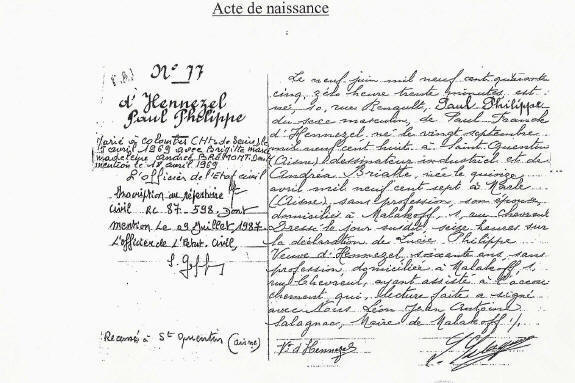 Acte de naissance
N° 77
d'Hennezel
Paul Philippe
Marié à Colombes (Hts de Seine) le
5 avril 1969 avec Brigitte Marie
Madeleine Andrée BREMONT. Dont
mention le 18 avril 1969
L'Officier de l'Etat civil
Inscription au répertoire
civil RC 87-598. Dont
mention le 29 Juillet 1987
L'Officier de l'Etat Civil,
Recensé à St Quentin (aisne)
Le neuf juin mil neuf cent quarante
cinq, zéro heure trente minutes est
né, 10, rue Renault, Paul Philippe
du sexe masculin, de Paul Franck
d'Hennezel, né le vingt septembre
mil neuf cent huit à Saint Quentin
(Aisne) dessinateur industriel et de
Andréa Briatte, née le quinze
avril mil neuf cent sept à Marle
(Aisne), sans profession, son épouse
domiciliés à Malakoff, 1, rue Chevreul
Dressé le jour susdit, seize heures sur
la déclaration de Lucie Philippe
Veuve d'Hennezel, soixante ans, sans
profession, domiciliée à Malakoff, 1,
rue Chevreul, ayant assisté à l'accou
chement qui, lecture faite a signé
avec Nous Léon Jean Antoine
Salagnac, Maire de Malakoff ./.
Ve d'Hennezel